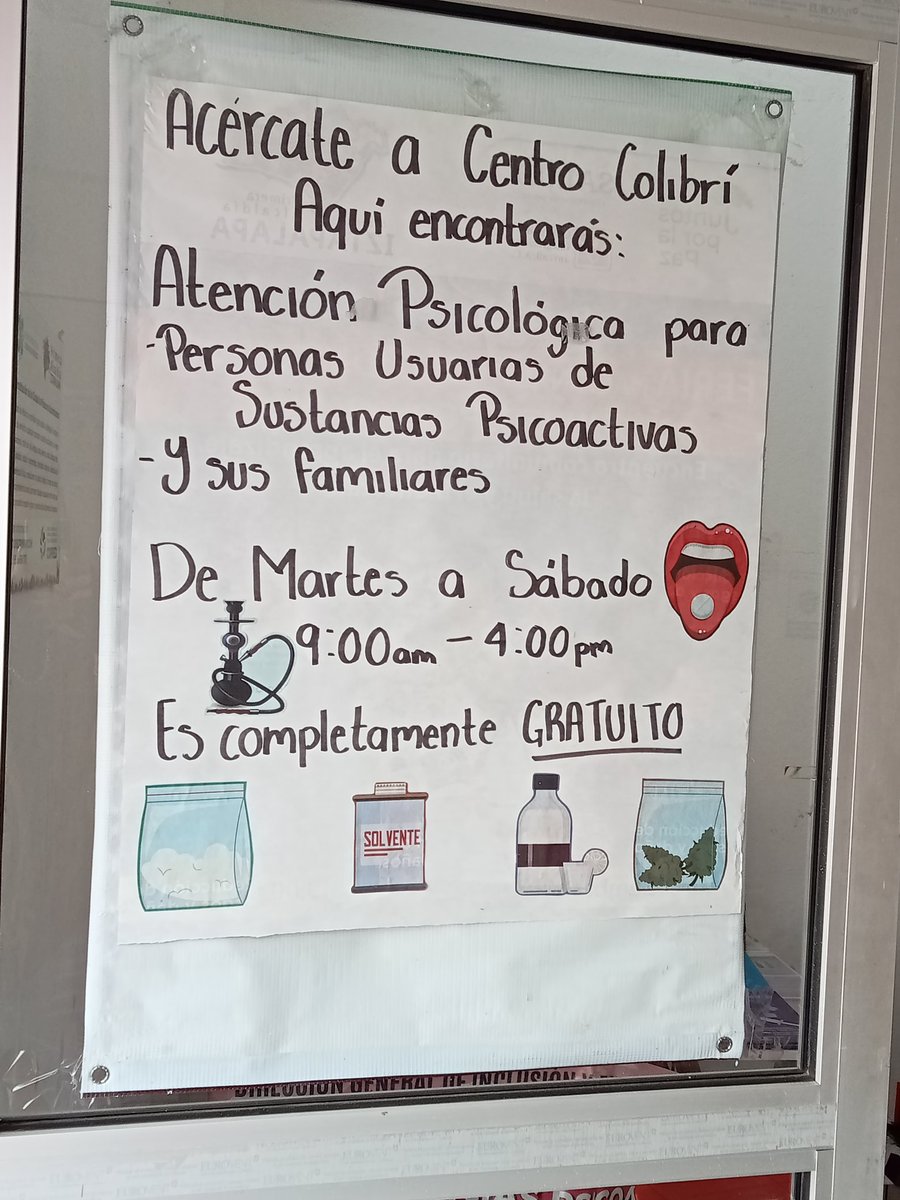 Acércate a Centro Colibrí
Aquí encontrarás:
Atención Psicológica para
-Personas Usuarias de
Sustancias Psicoactivas
- Y sus familiares
De Martes a Sábado
9:00am - 4:00pm
Es completamente GRATUITO
SOLVENTE
DIRECCIÓN GENERAL DE INCLUSIÓN Y